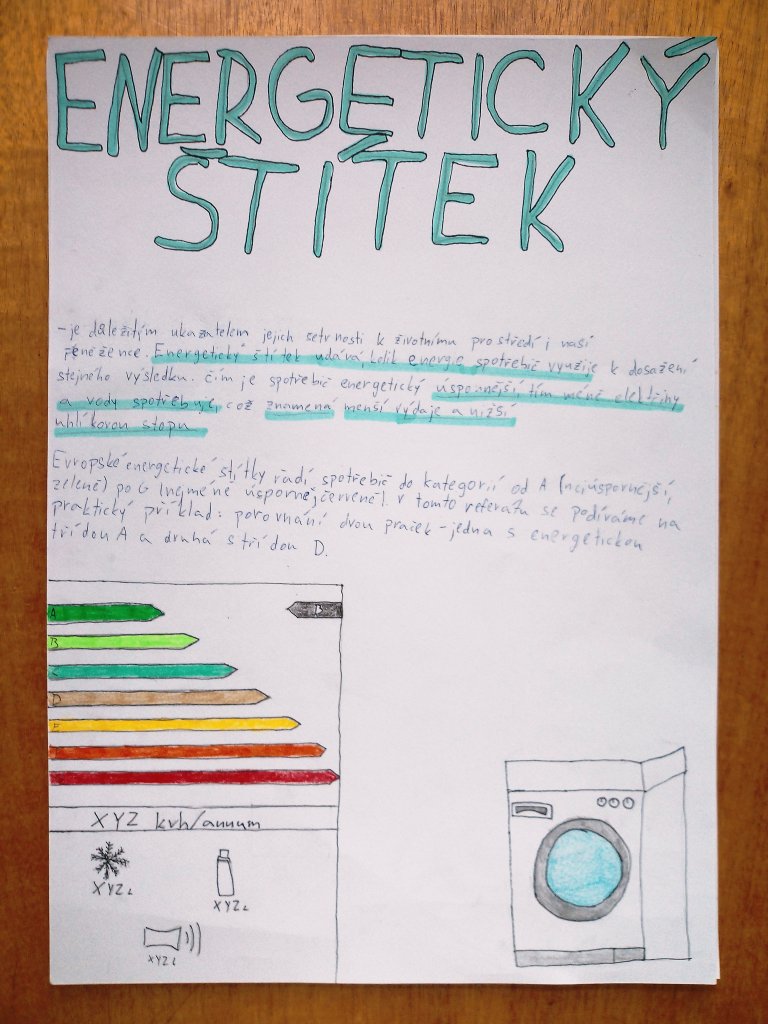 ENERGETICKÝ
ŠTÍTEK
- je důležitým ukazatelem jejich šetrnosti k životnímu prostředí i naší
peněžence. Energetický štítek udává, kolik energie spotřebič využije k dosažení
stejného výsledku. čím je spotřebič energetický úspornější, tím méně elektřiny
a vody spotřebuje, což znamená menší výdaje a nižší
uhlíkovou stopu.
Evropské energetické štítky řadí spotřebič do kategorií od A (nejúspornější,
zeleně) po G (nejméně úsporné, červeně). V tomto referátu se podíváme na
praktický příklad: porovnání dvou praček - jedna s energetickou
třídou A a druhá s třídou D.
A
B
B
C
D
E
XYZ kvh/annum
XYZ L
XYZ L
XYZ L